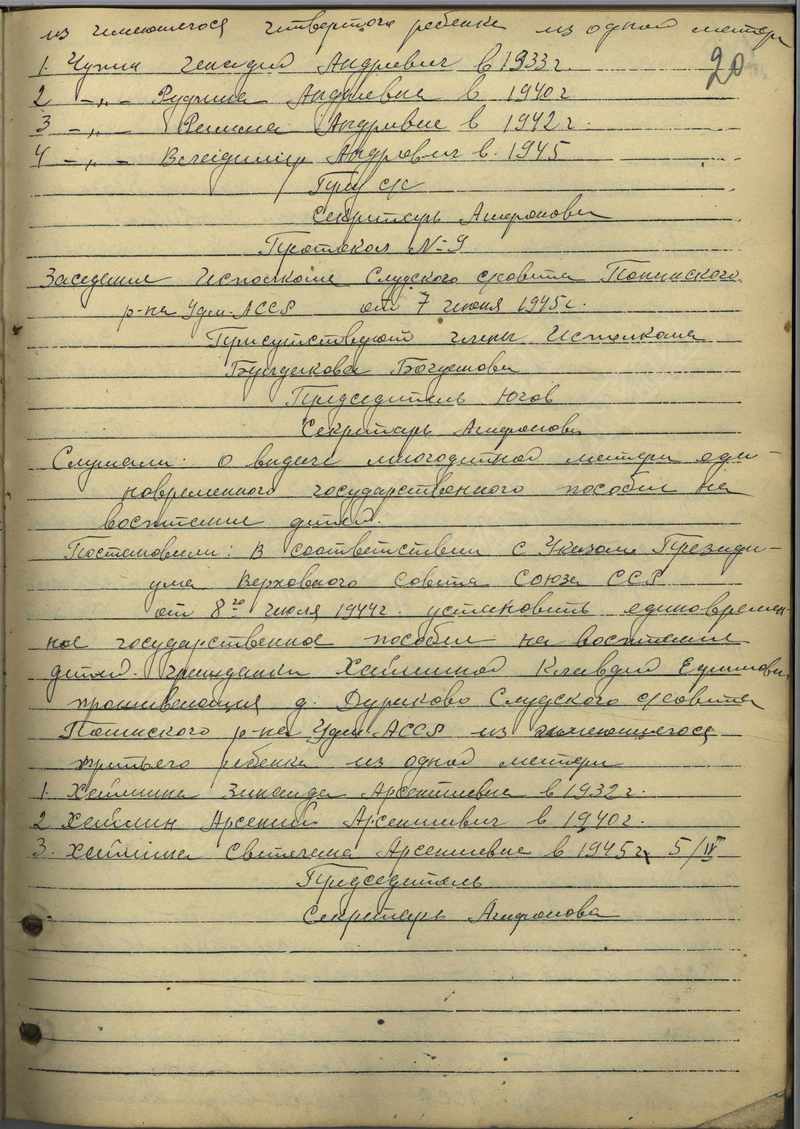 из имеющегося четвертого ребенка из одной матери
20
1. Чузма Генадий Андриевич в 1933 г.
2 -„- Андриевна в 1940 г
3 -„- Римма Андривне в 1942 г.
4 -„- Владимир Андрович в. 1945
Пред с/с
Секритарь Агафонова
Протокол № 9
Заседания Исполкома Слудского с/совита Понинского
р-на Удм. АССР от 7 июня 1945 г.
Присутствуют члены Исполкома
Булдакова Богушова
Председатель Югов
Секритарь Агафонова
Слушали: о выдаче многодетной матери еди-
новременного государственного пособия на
воспитание детей.
Постановили: В соответствии с Указом Президи-
ума Верховного Совета Союза ССР
от 8го июля 1944 г. установить единовремен-
ное государственное пособия на воспитание
детей. гражданки ХаймИной Клавдий Ефимовн.
проживающия д. Дураково Слудского с/совита
Понинского р-на Удм. АССР из имеющегося
третьего ребенка из одной матери
1. Хаймина Зинаида Арсентиевна в 1932 г.
2 Хаймин Арсений Арсениевич в 1940 г.
3. Хаймина Светлана Арсениевне в 1945 г. 5/IV
Председатель
Секретарь Агафонова